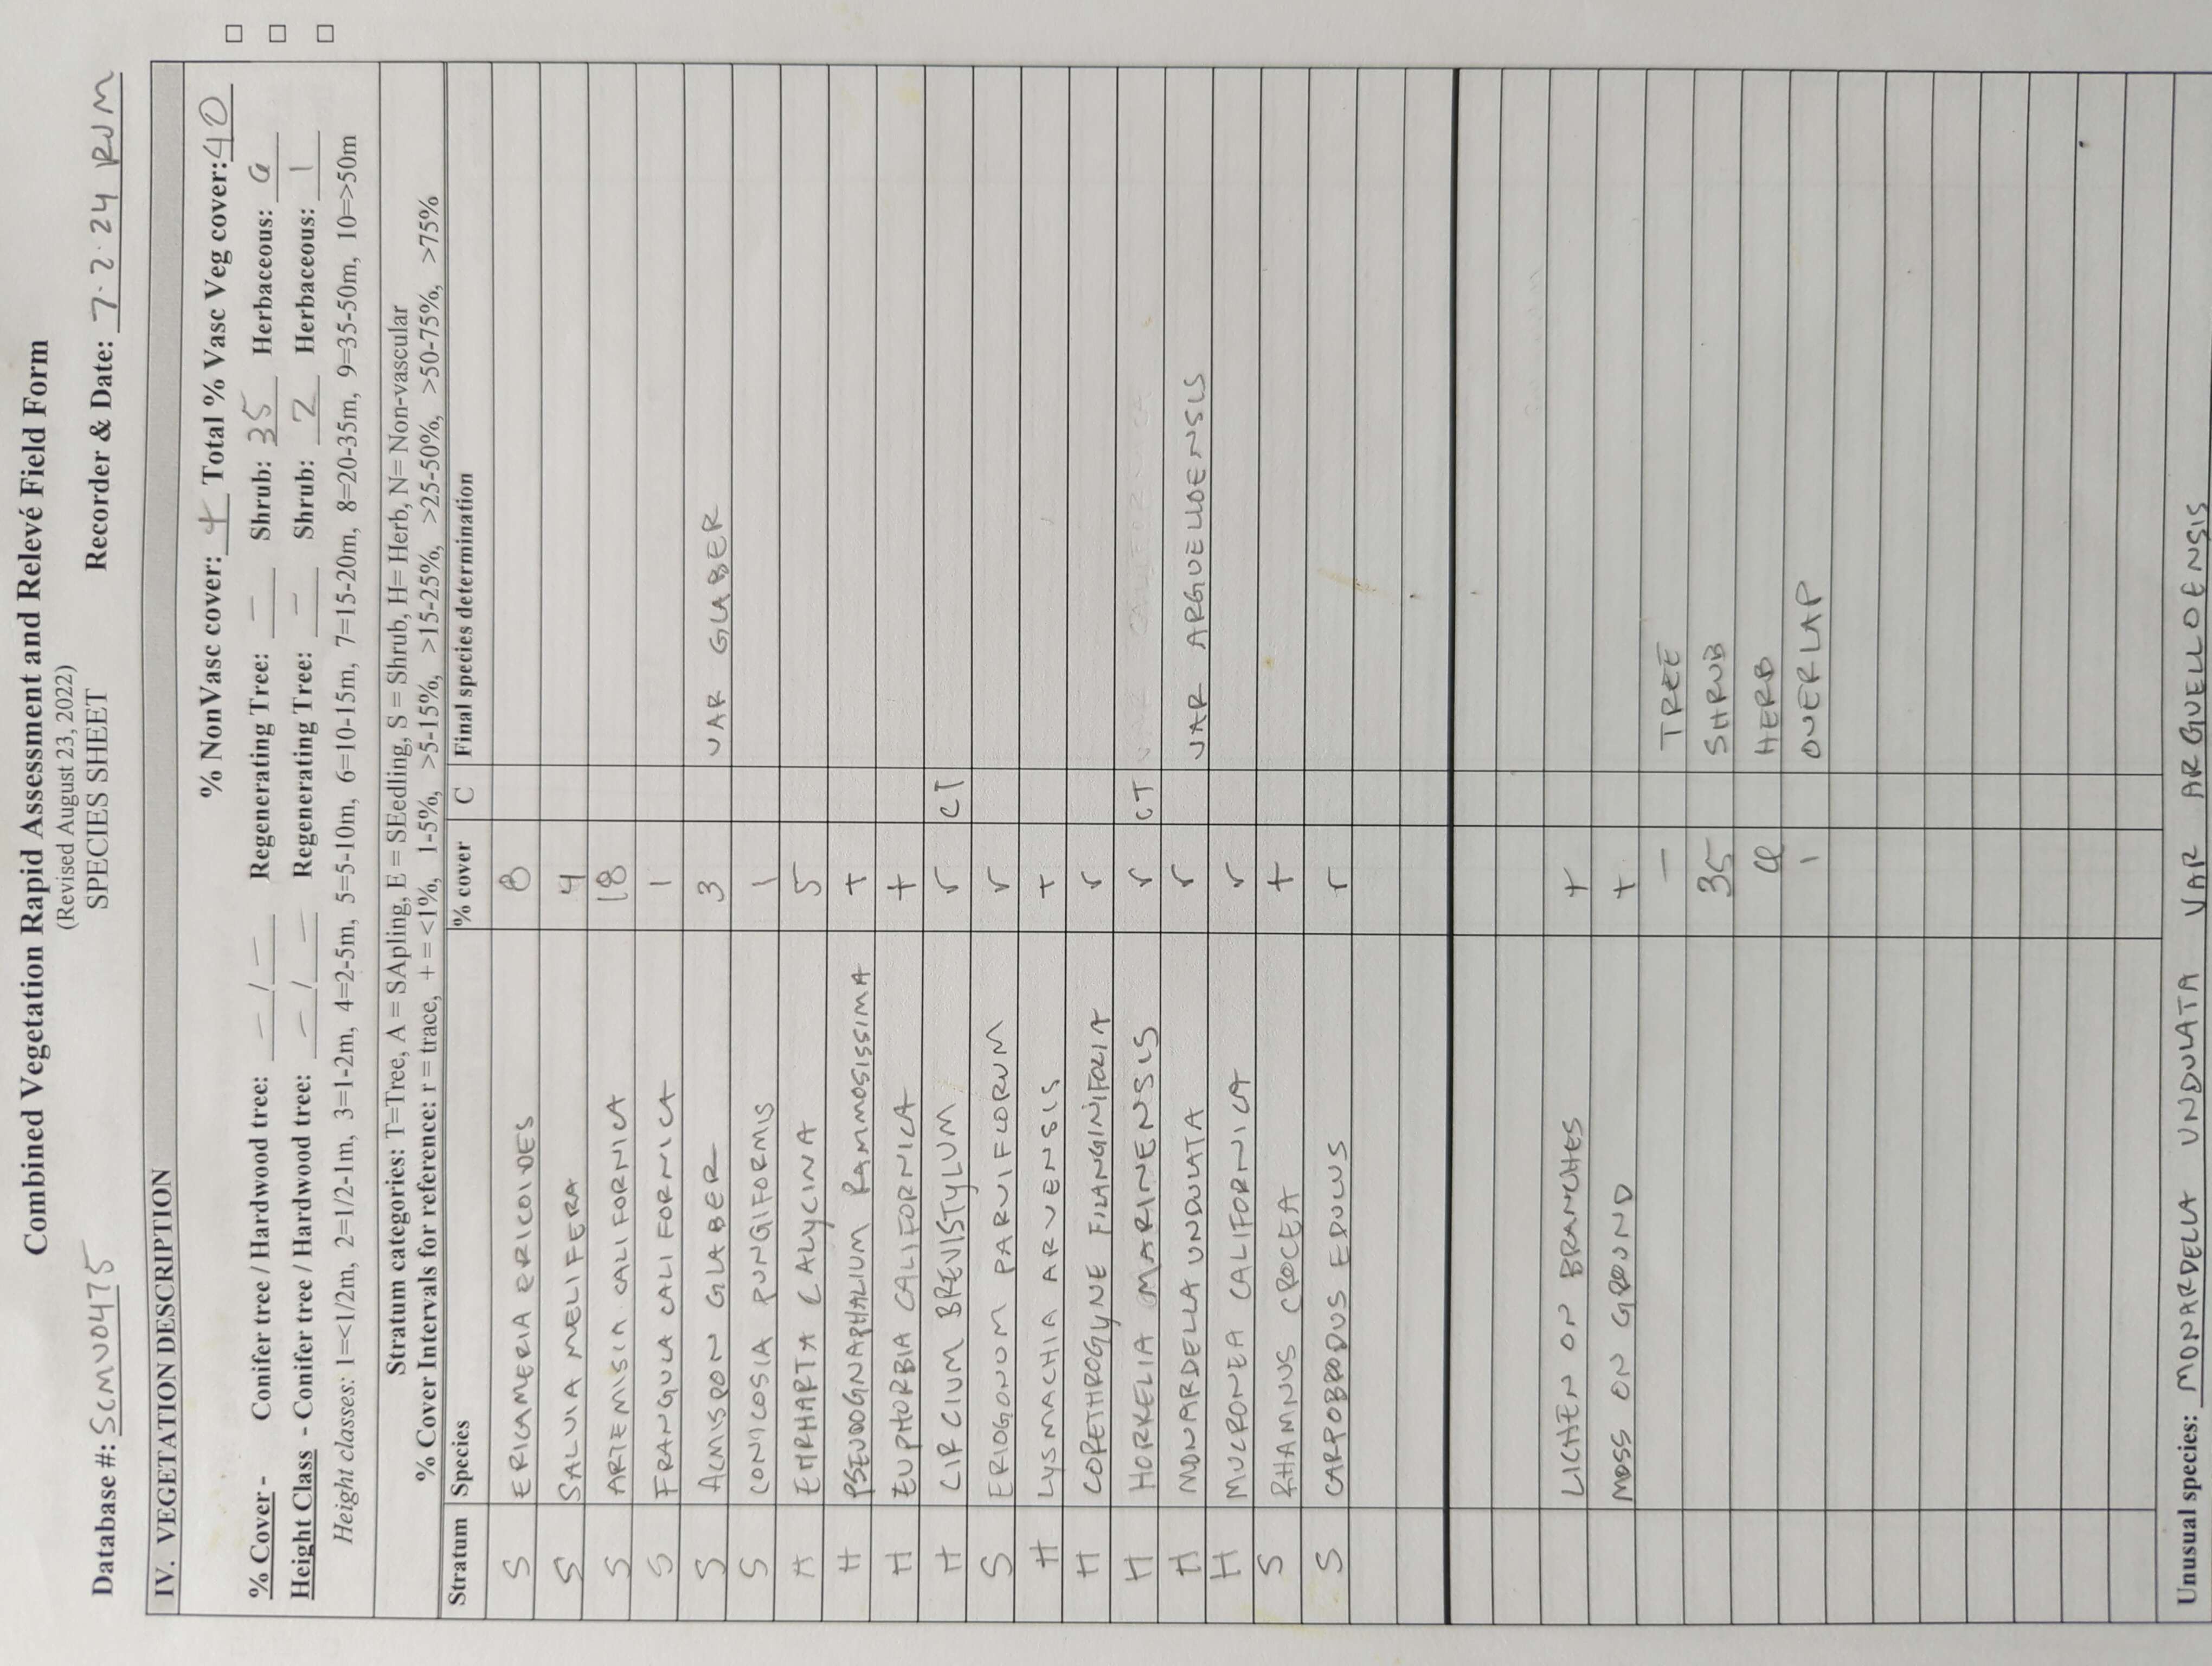 Combined Vegetation Rapid Assessment and Relevé Field Form
(Revised August 23, 2022)
Database #: SCMV0475 SPECIES SHEET Recorder & Date: 7·2·24 RJM
IV. VEGETATION DESCRIPTION
% NonVasc cover: + Total % Vasc Veg cover: 40
% Cover - Conifer tree / Hardwood tree: — / — Regenerating Tree: — Shrub: 35 Herbaceous:
Height Class - Conifer tree / Hardwood tree: — / — Regenerating Tree: — Shrub: 2 Herbaceous: 1
Height classes: 1=<1/2m, 2=1/2-1m, 3=1-2m, 4=2-5m, 5=5-10m, 6=10-15m, 7=15-20m, 8=20-35m, 9=35-50m, 10=>50m
Stratum categories: T=Tree, A = SApling, E = SEedling, S = Shrub, H= Herb, N= Non-vascular
% Cover Intervals for reference: r = trace, + = <1%, 1-5%, >5-15%, >15-25%, >25-50%, >50-75%, >75%
Stratum Species % cover C Final species determination
S ERICAMERIA ERICOIDES 8
S SALVIA MELIFERA 4
S ARTEMISIA CALIFORNICA 18
S FRANGULA CALIFORNICA 1
S ACMISPON GLABER 3 VAR GLABER
S CONICOSIA PUNGIFORMIS 1
H EHRHARTA CALYCINA 5
H PSEUDOGNAPHALIUM RAMMOSISSIMA +
H EUPHORBIA CALIFORNICA +
H CIRCIUM BREVISTYLUM r CT
S ERIOGONUM PARVIFLORUM r
H LYSMACHIA ARVENSIS +
H CORETHROGYNE FILANGINIFOLIA r
H HORKELIA MARINENSIS r CT
H MONARDELLA UNDULATA r VAR ARGUELLOENSIS
H MUCRONEA CALIFORNICA r
S RHAMNUS CROCEA +
S CARPOBRODUS EDULUS r
LICHEN ON BRANCHES +
MOSS ON GROUND +
— TREE
35 SHRUB
HERB
1 OVERLAP
Unusual species: MONARDELLA UNDULATA VAR ARGUELLOENSIS